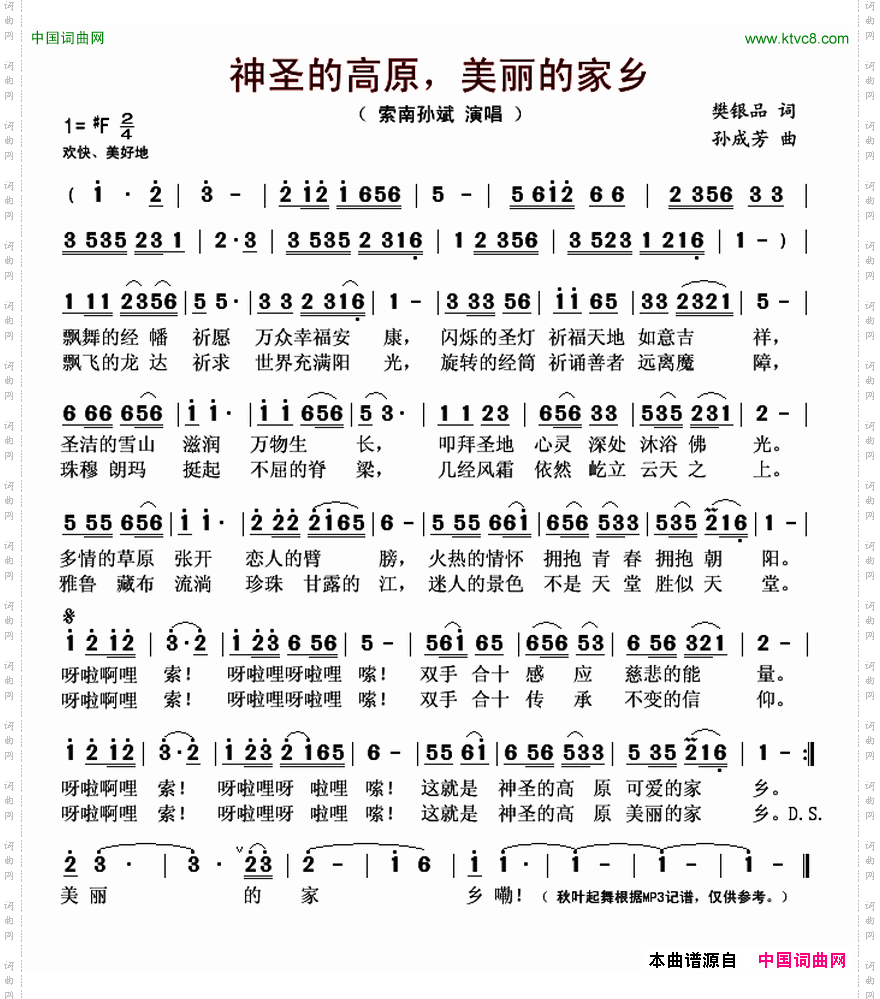 中国词曲网 www.ktvc8.com
神圣的高原，美丽的家乡
（ 索南孙斌 演唱 ）
樊银品 词
1= #F 2/4
孙成芳 曲
欢快、美好地
( 1 · 2 | 3 - | 2 12 1 656 | 5 - | 5 612 6 6 | 2 356 3 3 |
3 535 23 1 | 2 · 3 | 3 535 2 316 | 1 2 356 | 3 523 1 216 | 1 - ) |
1 11 2356 | 5 5 · | 3 3 2 316 | 1 - | 3 33 56 | 11 65 | 33 2321 | 5 - |
飘舞的经 幡 祈愿 万众幸福安 康， 闪烁的圣灯 祈福天地 如意吉 祥，
飘飞的龙 达 祈求 世界充满阳 光， 旋转的经筒 祈诵善者 远离魔 障，
6 66 656 | 1 1 · | 11 656 | 5 3 · | 1 1 23 | 656 33 | 535 231 | 2 - |
圣洁的雪山 滋润 万物生 长， 叩拜圣地 心灵 深处 沐浴 佛 光。
珠穆 朗玛 挺起 不屈的脊 梁， 几经风霜 依然 屹立 云天 之 上。
5 55 656 | 1 1 · | 2 22 2165 | 6 - | 5 55 661 | 656 533 | 535 216 | 1 - |
多情的草原 张开 恋人的臂 膀， 火热的情怀 拥抱 青 春 拥抱 朝 阳。
雅鲁 藏布 流淌 珍珠 甘露的 江， 迷人的景色 不是 天 堂 胜似 天 堂。
1 2 12 | 3 · 2 | 1 23 6 56 | 5 - | 561 65 | 656 53 | 6 56 321 | 2 - |
呀啦啊哩 索！ 呀啦哩呀啦哩 嗦！ 双手 合十 感 应 慈悲的能 量。
呀啦啊哩 索！ 呀啦哩呀啦哩 嗦！ 双手 合十 传 承 不变的信 仰。
1 2 12 | 3 · 2 | 1 23 2 165 | 6 - | 55 61 | 6 56 533 | 5 35 216 | 1 - :||
呀啦啊哩 索！ 呀啦哩呀 啦哩 嗦！ 这就是 神圣的高 原 可爱的家 乡。
呀啦啊哩 索！ 呀啦哩呀 啦哩 嗦！ 这就是 神圣的高 原 美丽的家 乡。D.S.
2 3 · | 3 · ∨ 23 | 2 - | 1 6 | 1 1 · | 1 - | 1 - | 1 - ||
美 丽 的 家 乡嘞！（ 秋叶起舞根据MP3记谱，仅供参考。）
本曲谱源自 中国词曲网